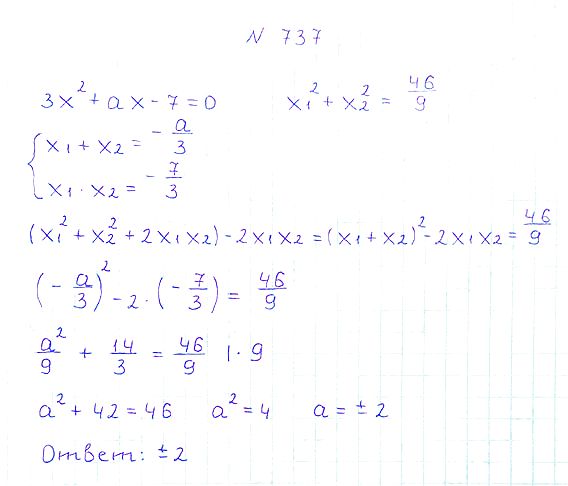 N 737
3x² + ax - 7 = 0    x₁² + x₂² = 46/9
{ x₁ + x₂ = - a/3
x₁ · x₂ = - 7/3
(x₁² + x₂² + 2x₁x₂) - 2x₁x₂ = (x₁ + x₂)² - 2x₁x₂ = 46/9
(- a/3)² - 2 · (- 7/3) = 46/9
a²/9 + 14/3 = 46/9 | · 9
a² + 42 = 46    a² = 4    a = ± 2
Ответ: ± 2